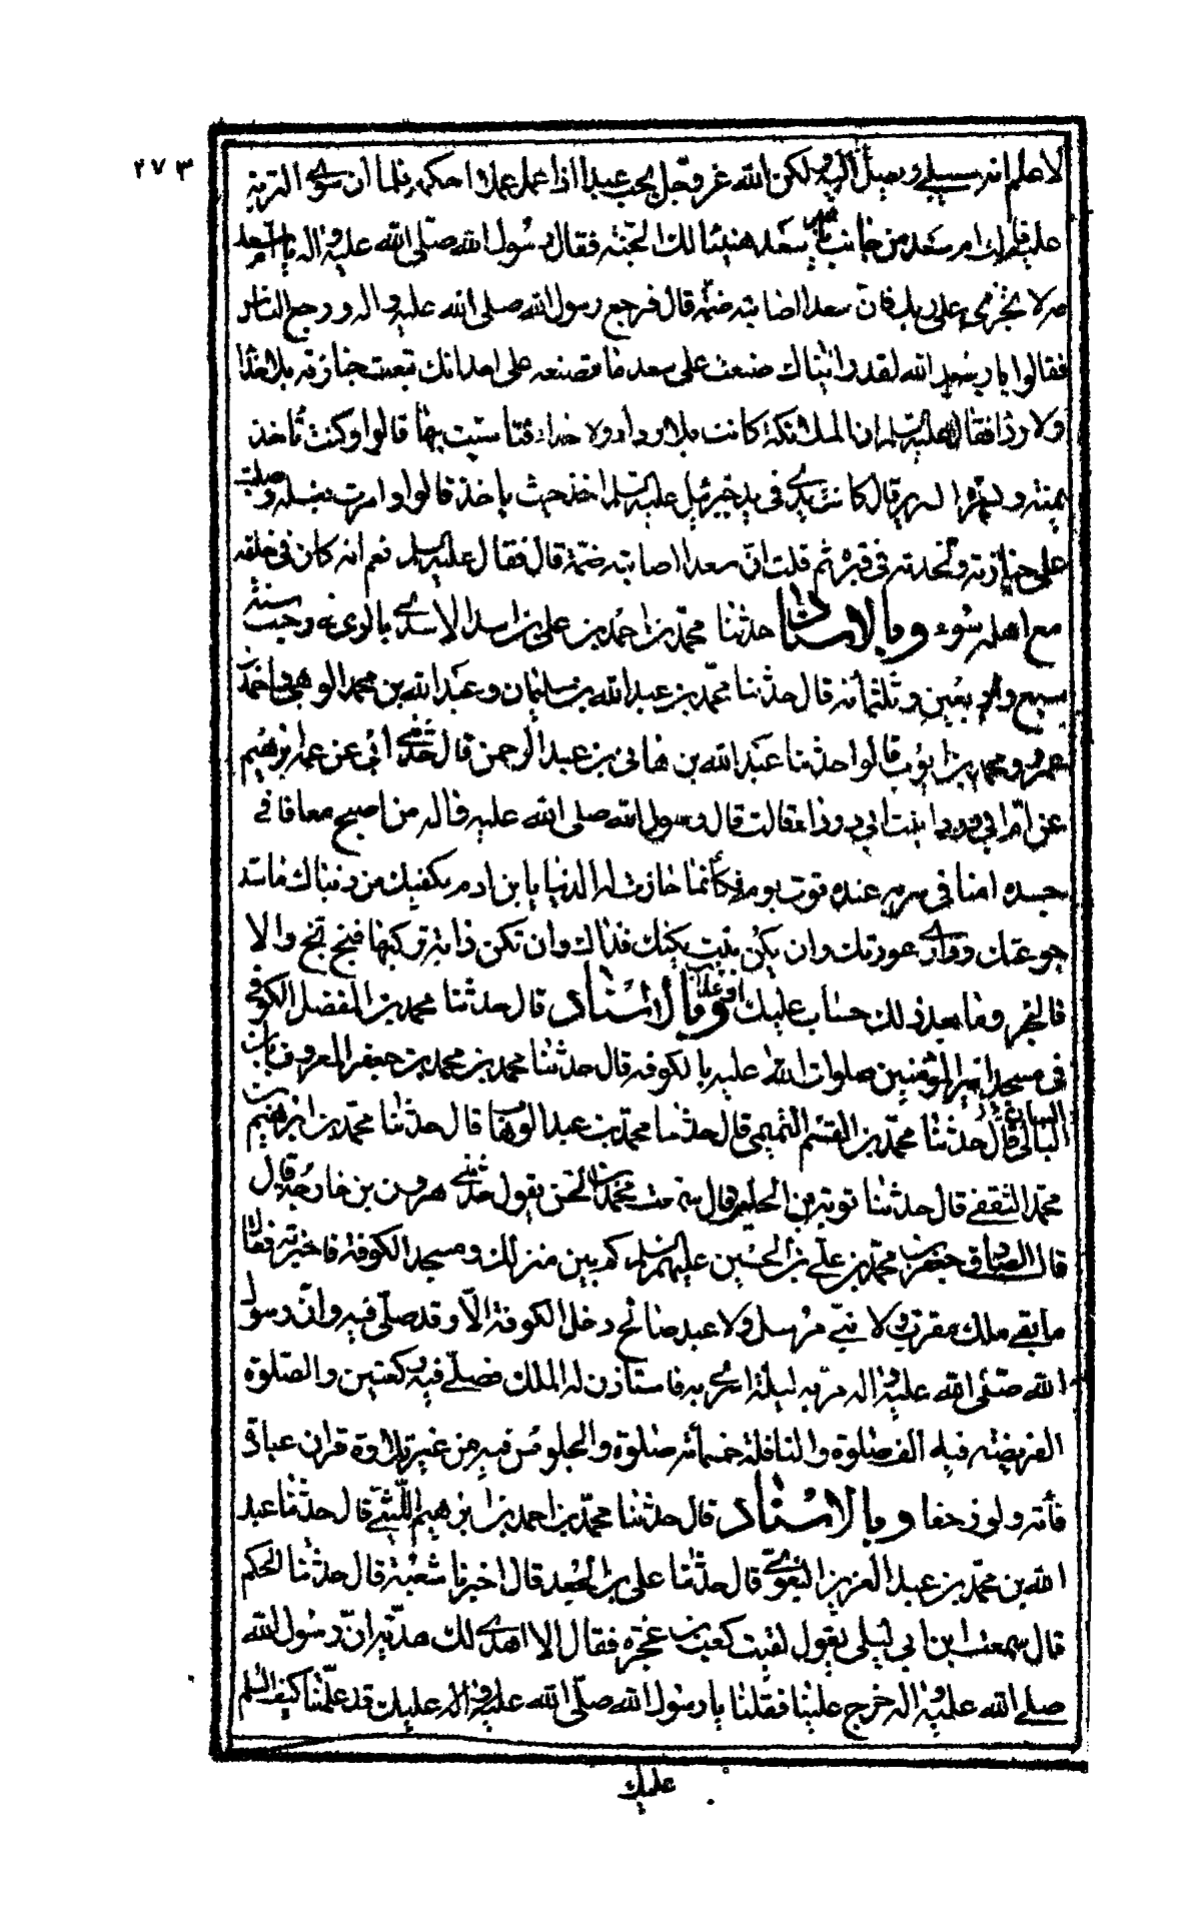 ٢٧٣
لاعلم انه سيبلى ويصل اليه ولكن الله عز وجل يحب عبدا اذا عمل عملا احكمه فلما ان سوى التربة
عليه قالت ام سعد من جانب يا سعد هنيئا لك الجنة فقال رسول الله صلى الله عليه واله يا ام سعد
مه لا تجزمى على ربك فان سعدا اصابته ضمة قال فرجع رسول الله صلى الله عليه واله ورجع الناس
فقالوا يا رسول الله لقد رايناك صنعت على سعد ما لم تصنعه على احد انك تبعت جنازته بلا حذاء
ولا ردا فقال عليه السلم ان الملائكة كانت بلا رداء ولا حذاء فتاسيت بها قالوا وكنت تاخذ
يمنة ويسرة السرير قال كانت يدى فى يد جبرئيل عليه السلم اخذ حيث ياخذ قالوا وامرت بغسله وصليت
على جنازته ولحدته فى قبره ثم قلت ان سعدا اصابته ضمة قال فقال عليه السلم نعم انه كان فى خلقه
مع اهله سوء وبالاسناد حدثنا محمد بن احمد بن على بن اسد الاسدى بالرى فى رجب سنة
سبع واربعين وثلثمائة قال حدثنا محمد بن عبد الله بن سليمان وعبد الله بن محمد الوهبى واحمد
عمير ومحمد بن ايوب قالوا حدثنا عبد الله بن هانى بن عبد الرحمن قال حدثنى ابى عن عمه ابرهيم
عن ام الدرداء عن ابى الدرداء قالت قال رسول الله صلى الله عليه واله من اصبح معافا فى
جسده امنا فى سربه عنده قوت يومه فكأنما حازت له الدنيا يا بن ادم يكفيك من دنياك ما سد
جوعتك ووارى عورتك وان يكن بيت يكنك فذاك وان تكن دابة تركبها فبخ بخ والا
فالخبز وما بعد ذلك حساب عليك او عذاب وبالاسناد قال حدثنا محمد بن المفضل الكوفى
فى مسجد امير المؤمنين صلوات الله عليه بالكوفة قال حدثنا محمد بن محمد بن جعفر المعروف بابن
التبان قال حدثنا محمد بن القسم النهمى قال حدثنا محمد بن عبد الوهاب قال حدثنا محمد بن ابرهيم
محمد الثقفى قال حدثنا توبة بن الخليل قال سمعت محمد بن الحسن يقول حدثنى هرون بن خارجة قال
قال الصادق جعفر بن محمد بن على بن الحسين عليهم السلم كم بين منزلك ومسجد الكوفة فاخبرته فقال
ما بقى ملك مقرب ولا نبى مرسل ولا عبد صالح دخل الكوفة الا وقد صلى فيه وان رسول
الله صلى الله عليه واله مر به ليلة اسرى به فاستاذن له الملك فصلى فيه ركعتين والصلوة
الفريضة فيه الف صلوة والنافلة خمسمائة صلوة والجلوس فيه من غير تلاوة قران عبادة
فأته ولو زحفا وبالاسناد قال حدثنا محمد بن احمد بن ابرهيم الليثى قال حدثنا عبد
الله بن محمد بن عبد العزيز البغوى قال حدثنا على بن الجعد قال اخبرنا شعبة قال حدثنا الحكم
قال سمعت ابن ابى ليلى يقول لقيت كعب بن عجرة فقال الا اهدى لك هدية ان رسول الله
صلى الله عليه واله خرج علينا فقلنا يا رسول الله صلى الله عليه واله عليك قد علمنا كيف السلم
عليك